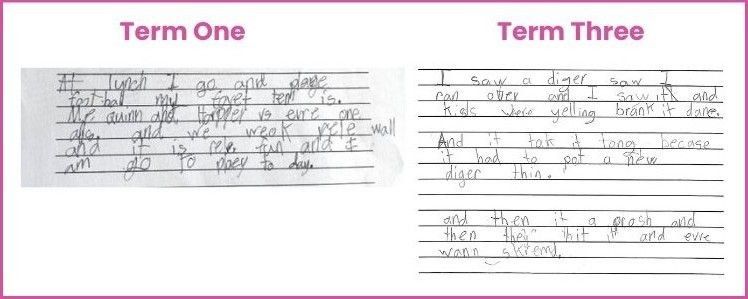 Term One
At lynch I go and
football my favet is.
Me Quinn and Harper vs evre one
and we weok rele wall
and it is rele fun and I
am go to play to day.
Term Three
I saw a diger saw I
ran over and I saw it and
kids where yelling brank it dawe.
And it tok it long becase
it had to pot a new
diger thin.
and then it a prosh and
then they hit it and evre
wann skremd.